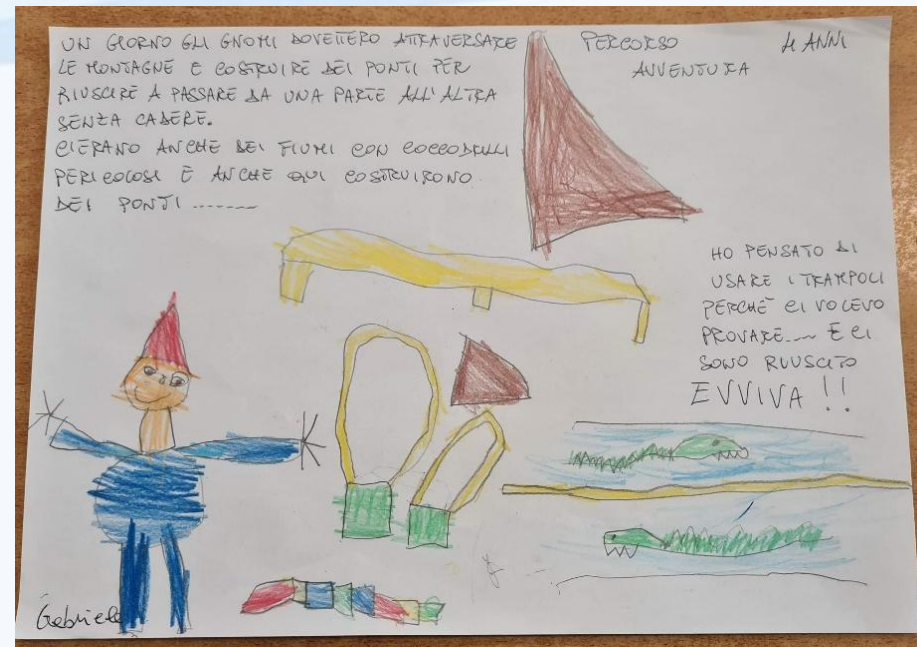 UN GIORNO GLI GNOMI DOVETTERO ATTRAVERSARE
LE MONTAGNE E COSTRUIRE DEI PONTI PER
RIUSCIRE A PASSARE DA UNA PARTE ALL'ALTRA
SENZA CADERE.
C'ERANO ANCHE DEI FIUMI CON COCCODRILLI
PERICOLOSI E ANCHE QUI COSTRUIRONO
DEI PONTI .......
PERCORSO
AVVENTURA
4 ANNI
HO PENSATO DI
USARE I TRAMPOLI
PERCHÈ CI VOLEVO
PROVARE.... E CI
SONO RIUSCITO
EVVIVA !!
Gabriele